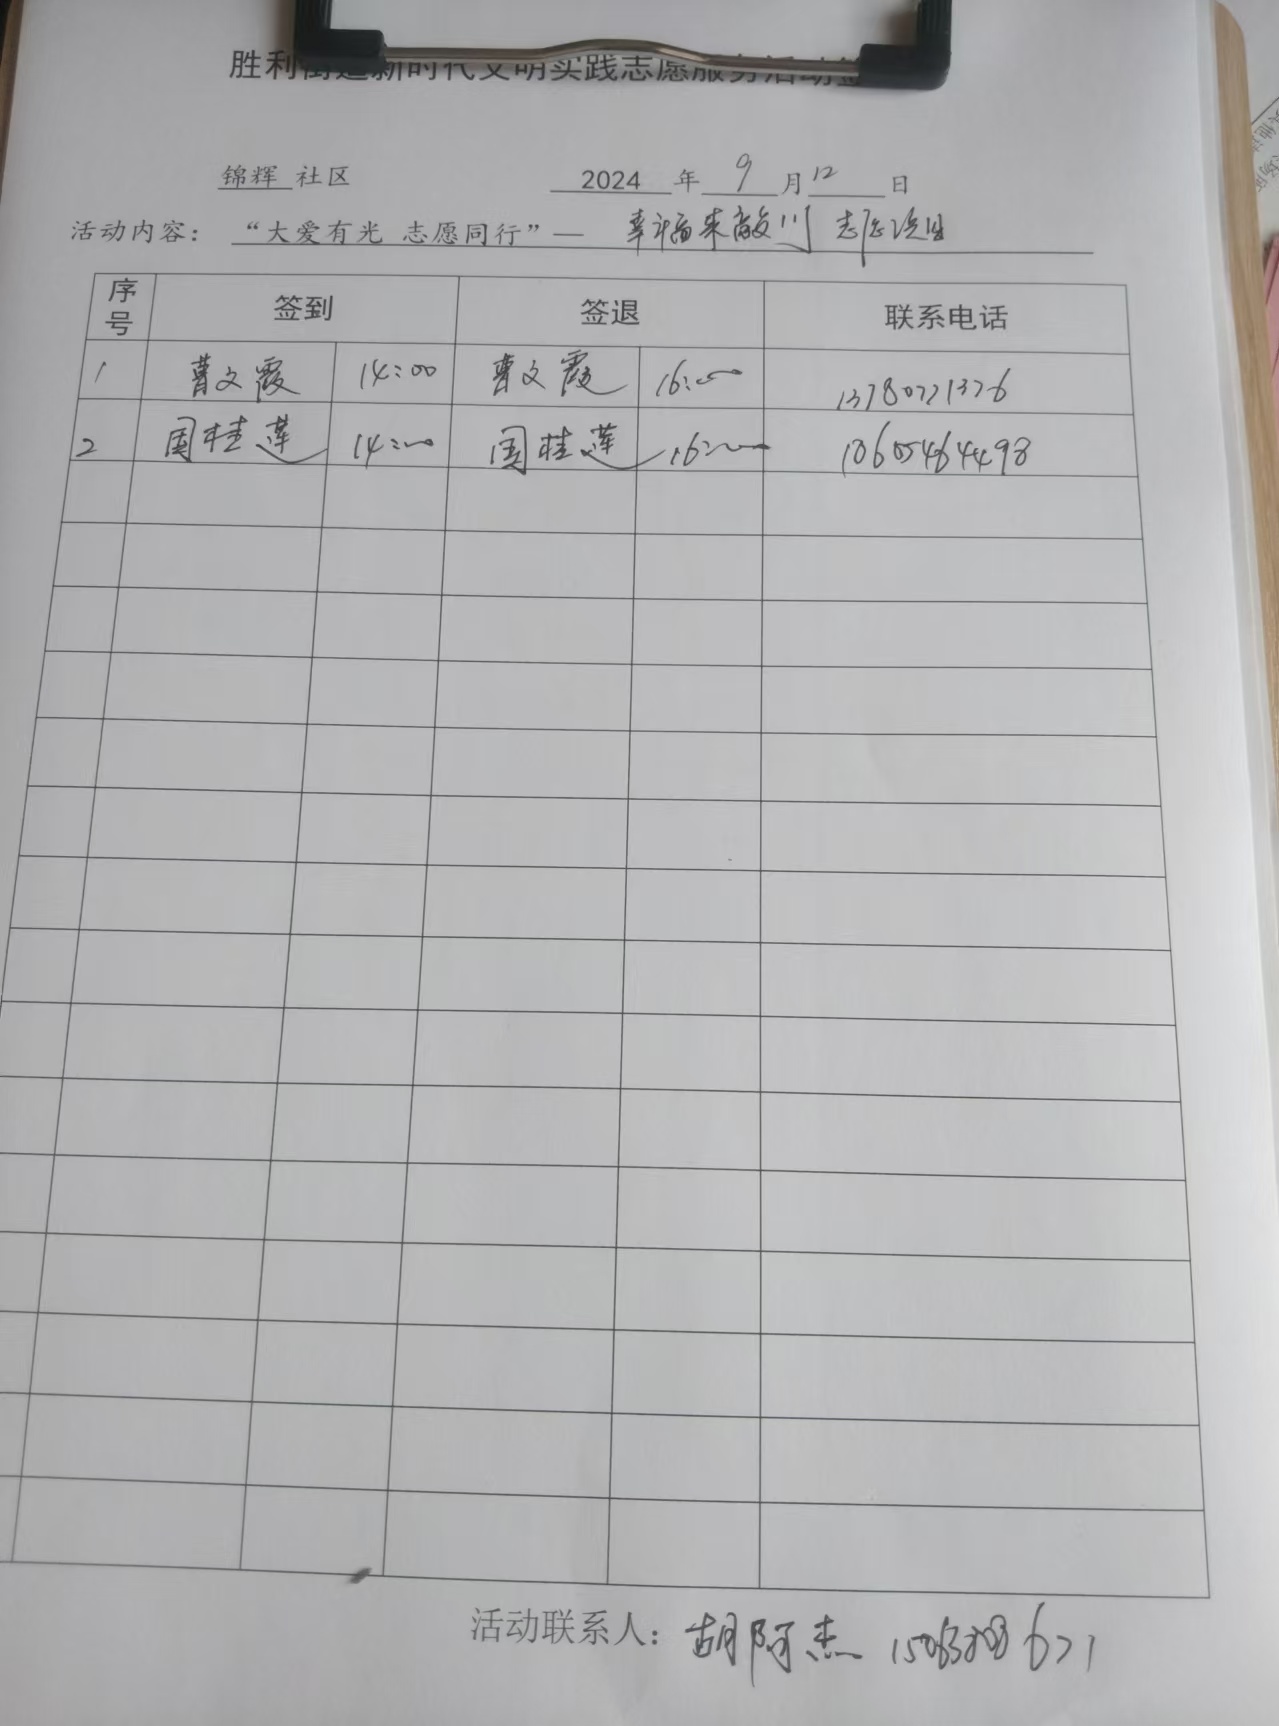 胜利街道新时代文明实践志愿服务活动签
锦辉 社区 2024 年 9 月 12 日
活动内容： “大爱有光 志愿同行”— 幸福来敲门 志愿项目
序号 签到 签退 联系电话
1 曹文霞 14:00 曹文霞 16:00 13780771376
2 国桂莲 14:00 国桂莲 16:00
活动联系人： 胡阿杰